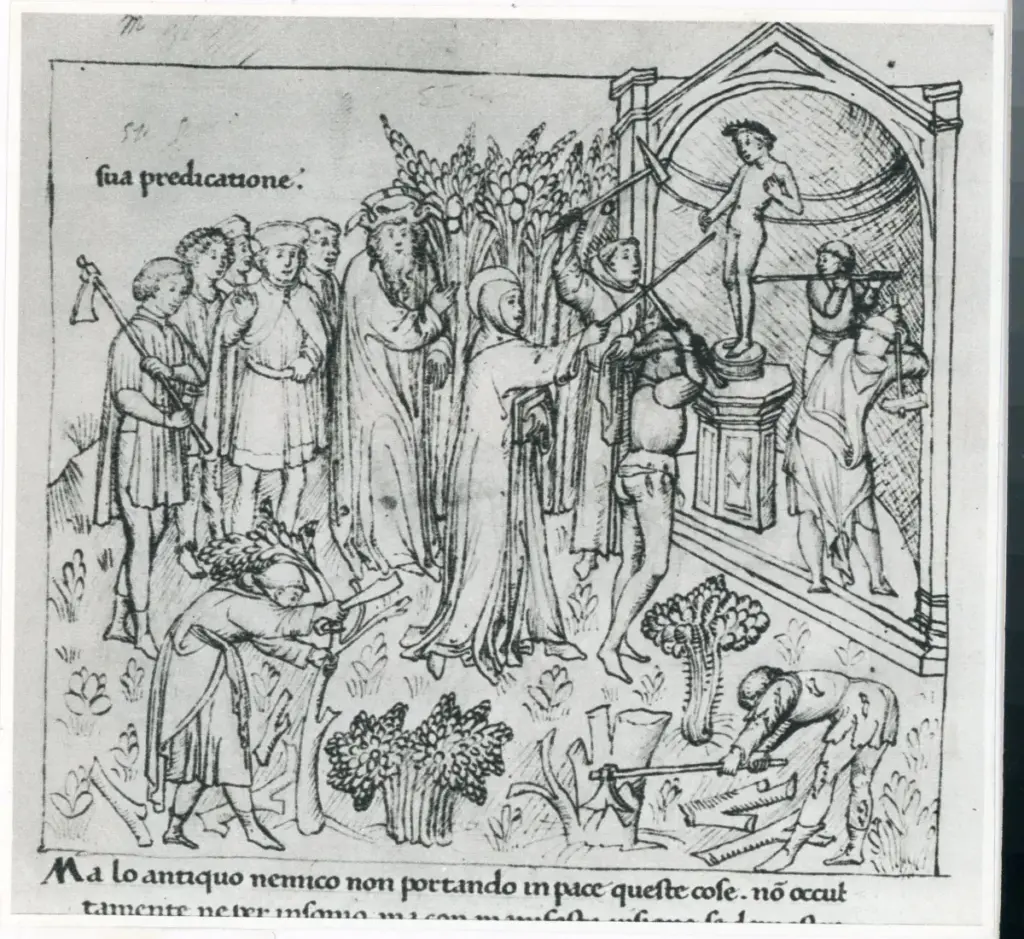 sua predicatione.
Ma lo antiquo nemico non portando in pace queste cose. nō occul
tamente ne per insonio, ma con manifesta